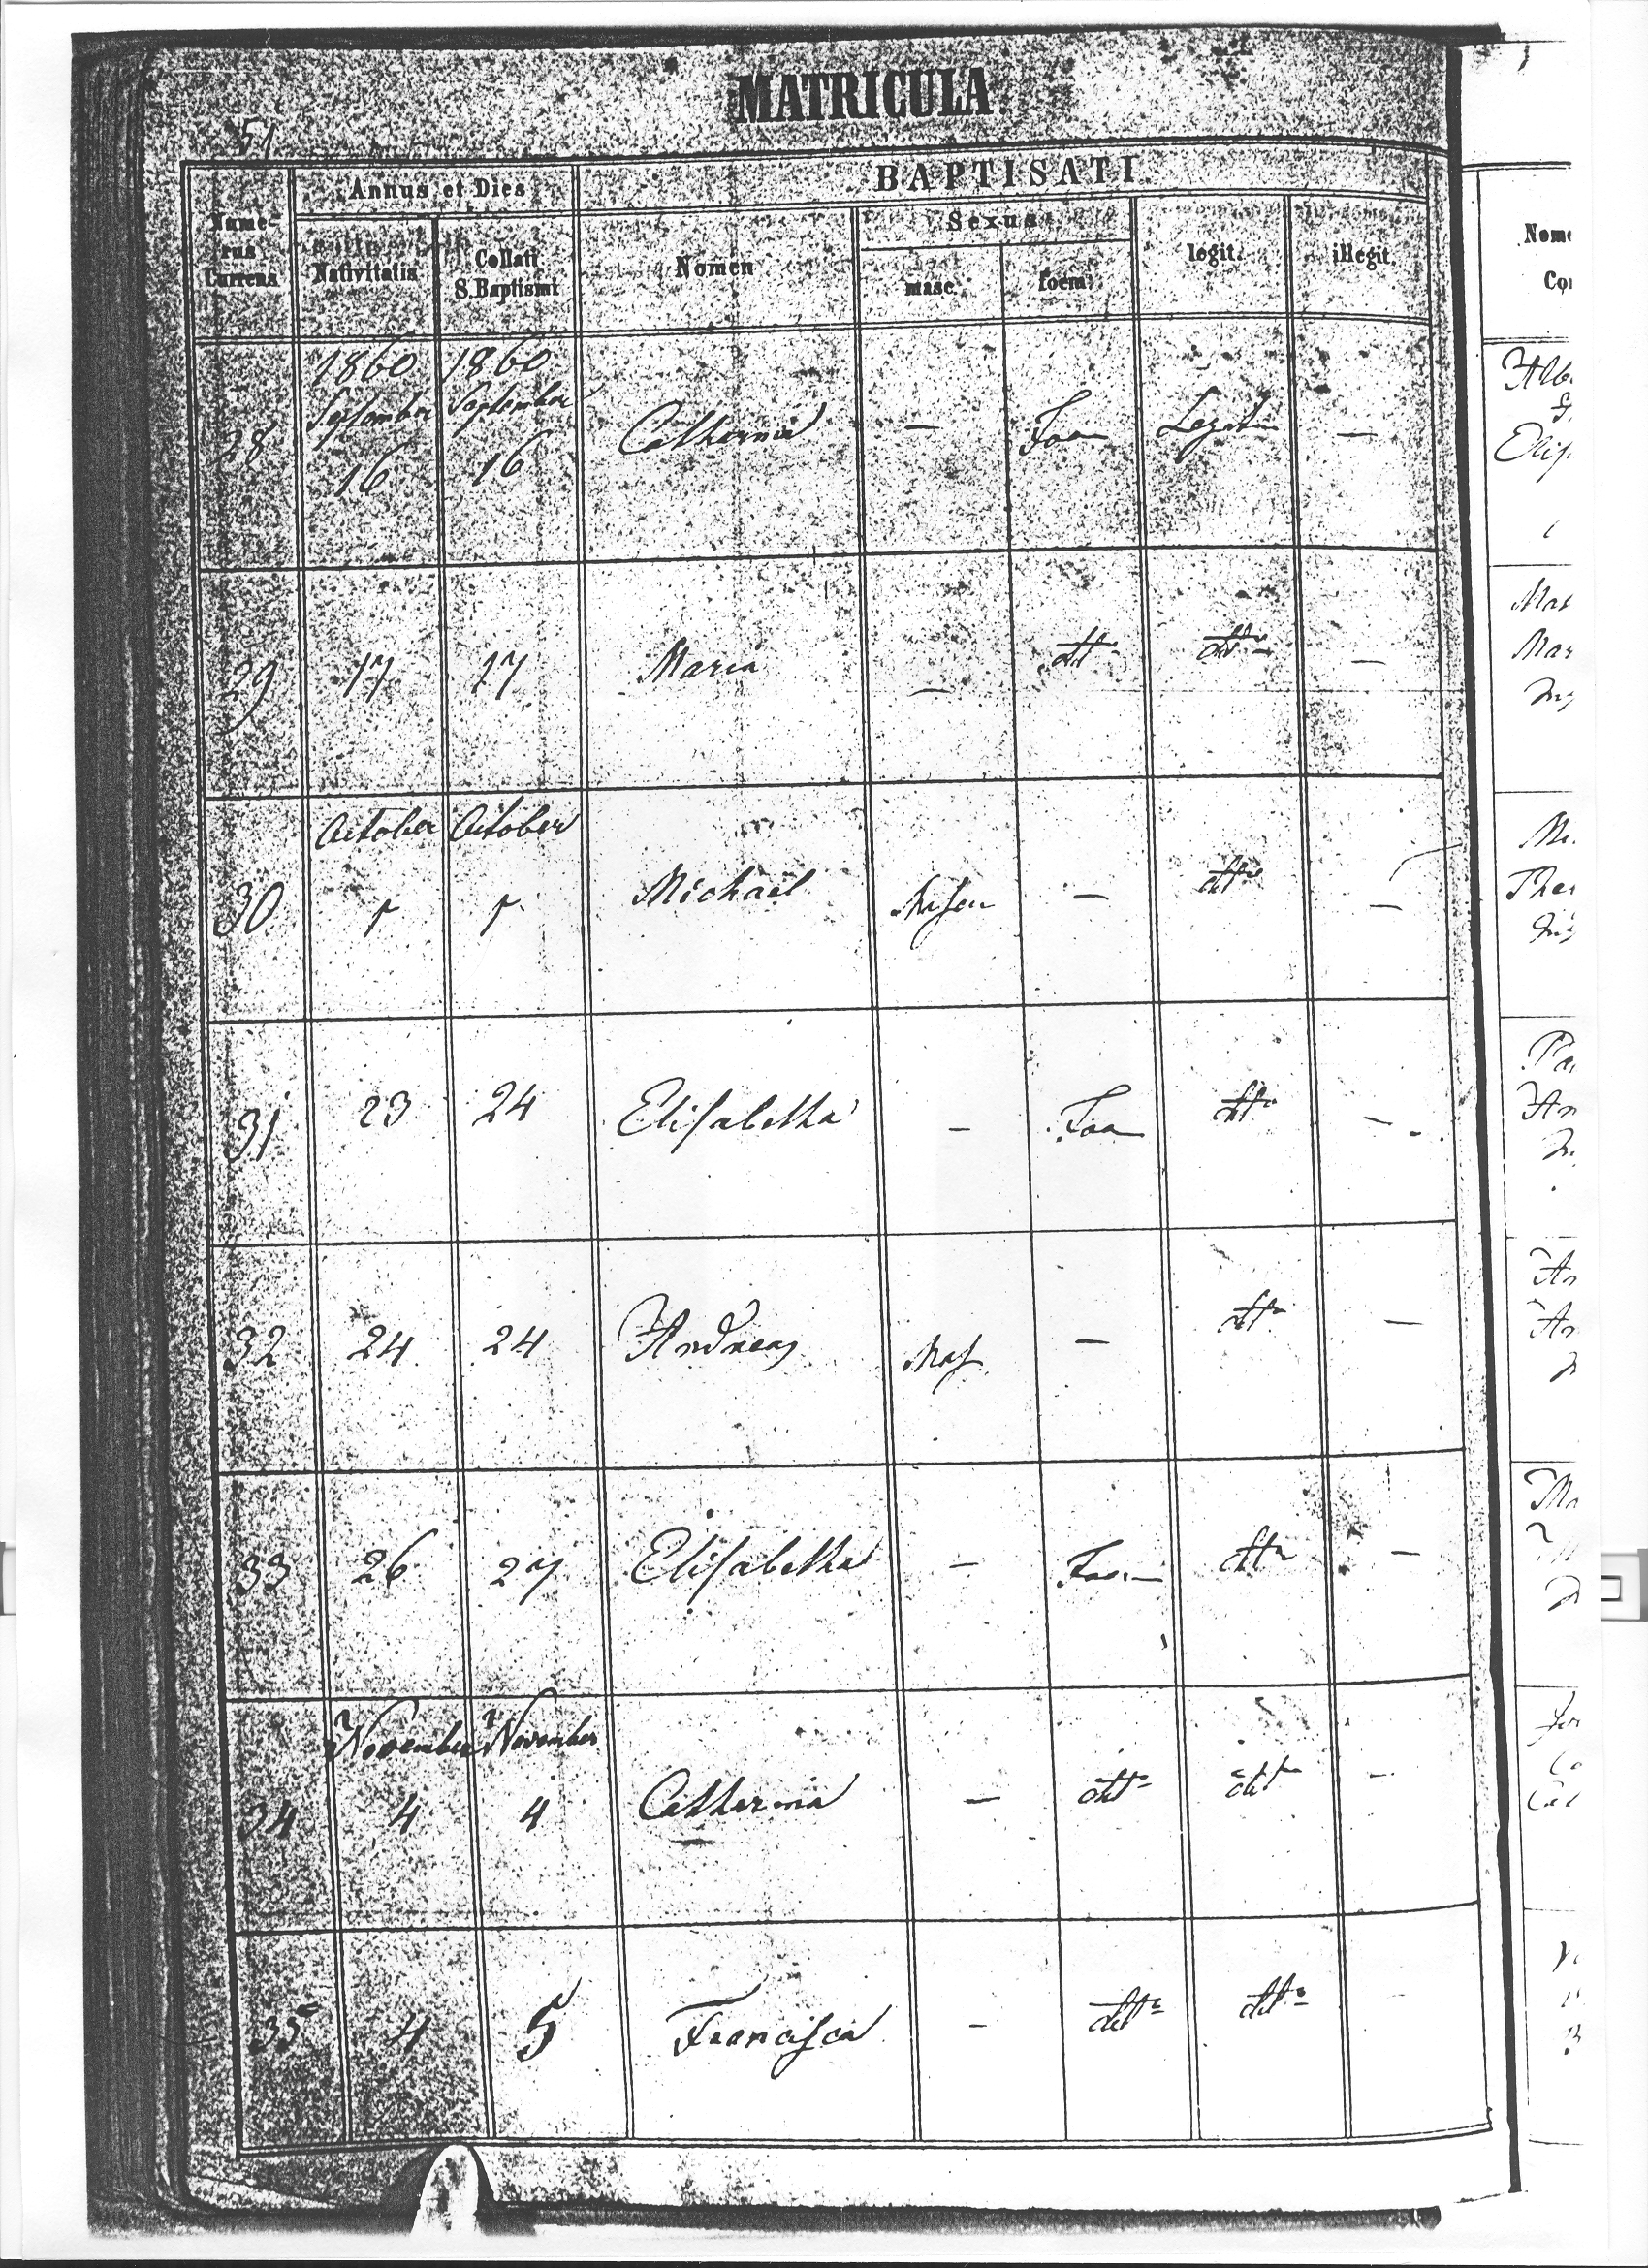 MATRICULA
51
Nume-
rus
Currens
Annus et Dies
Nativitatis
Collati
S. Baptismi
BAPTISATI
Nomen
Sexus
masc.
foem.
legit.
illegit.
28
1860
September
16
1860
September
16
Catharina
—
Foe
Legit
—
29
17
17
Maria
—
dtto
dtto
—
30
October
October
Michaël
—
dtto
—
31
23
24
Elisabetha
—
Foe
dtto
—
32
24
24
Andreas
Mas
—
dtto
—
33
26
27
Elisabetha
—
Foe
dtto
—
34
November
4
November
4
Catharina
—
dtto
dtto
—
35
4
5
Francisca
—
dtto
dtto
-